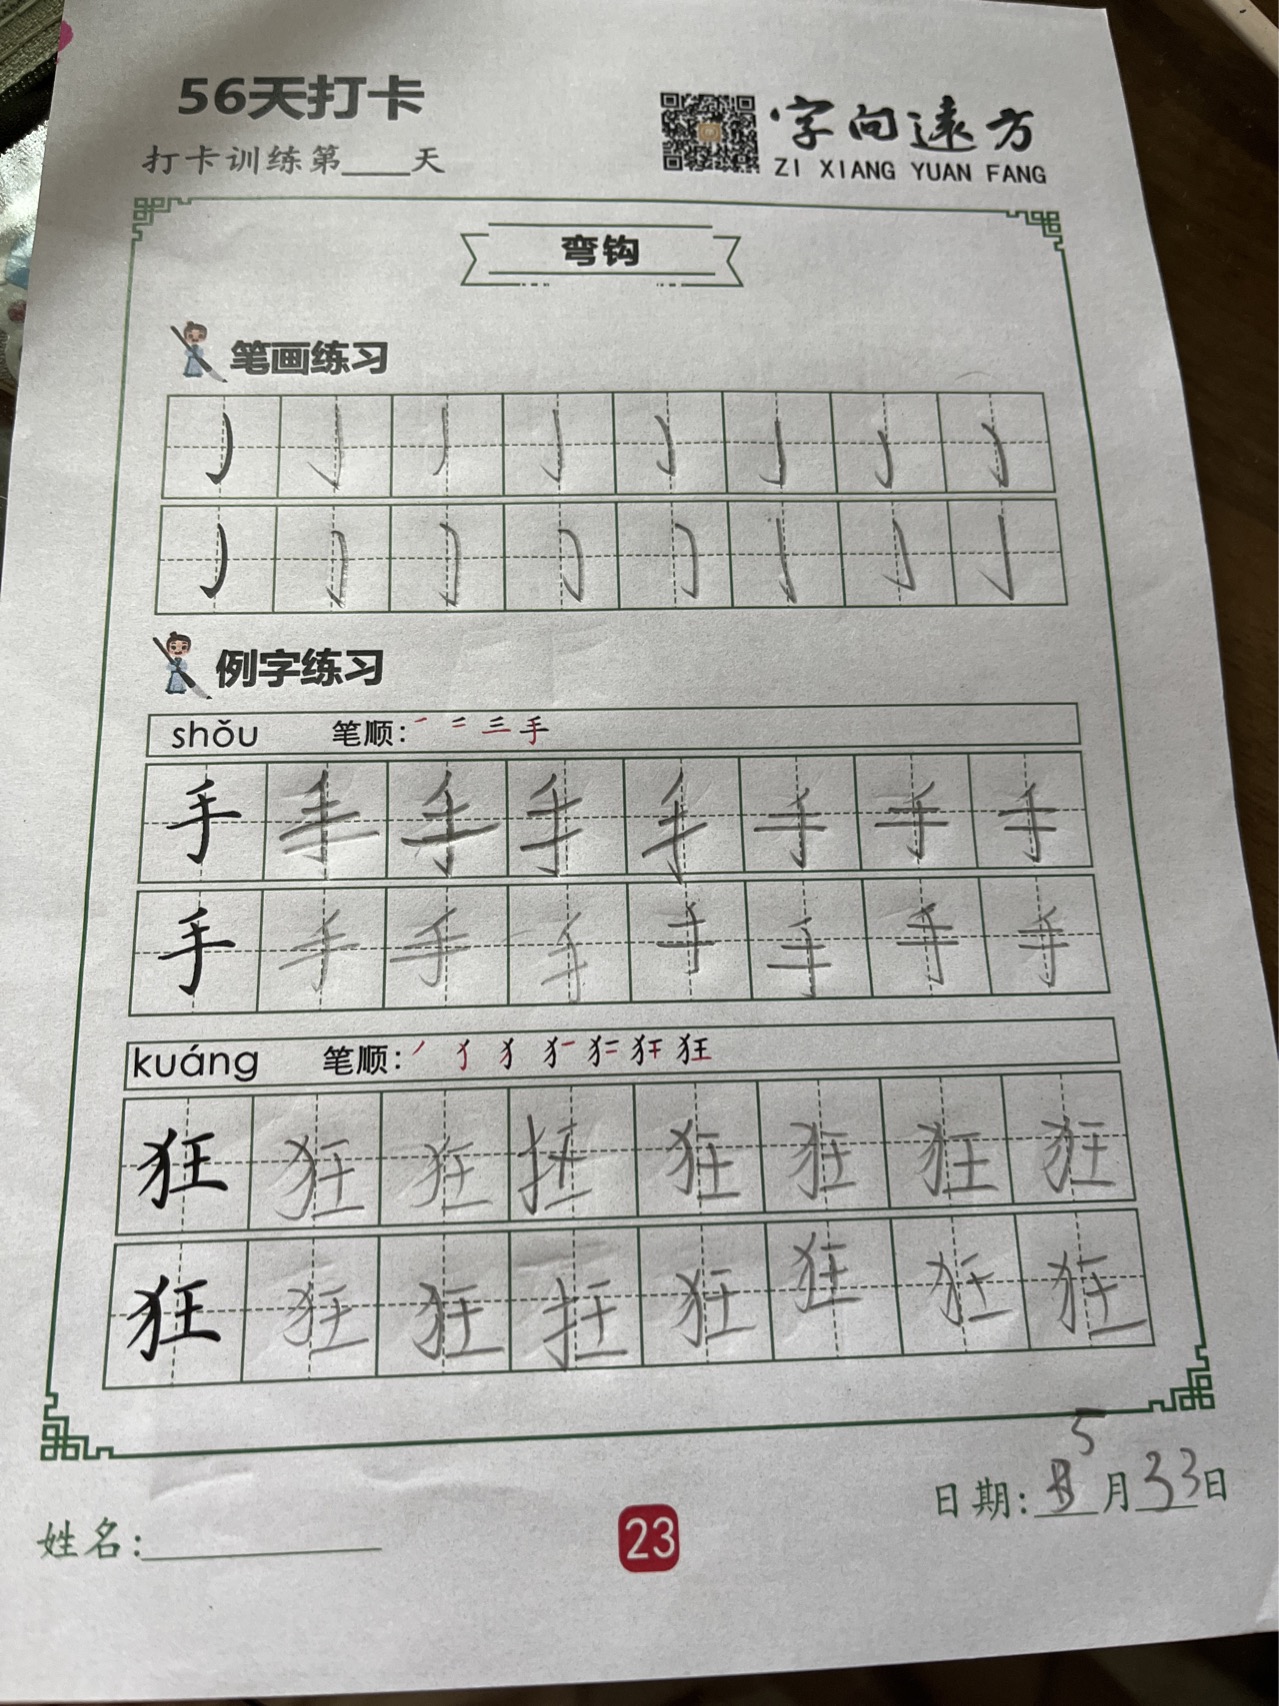 56天打卡
打卡训练第____天
字向遠方
ZI XIANG YUAN FANG
弯钩
笔画练习
例字练习
shǒu 笔顺: 一 二 三 手
手 手 手 手 手 手 手 手
手 手 手 手 手 手 手 手
kuáng 笔顺: 丿 犭 狂
狂 狂 狂 狂 狂 狂 狂 狂
狂 狂 狂 狂 狂 狂 狂 狂
日期: 5月33日
姓名:
23